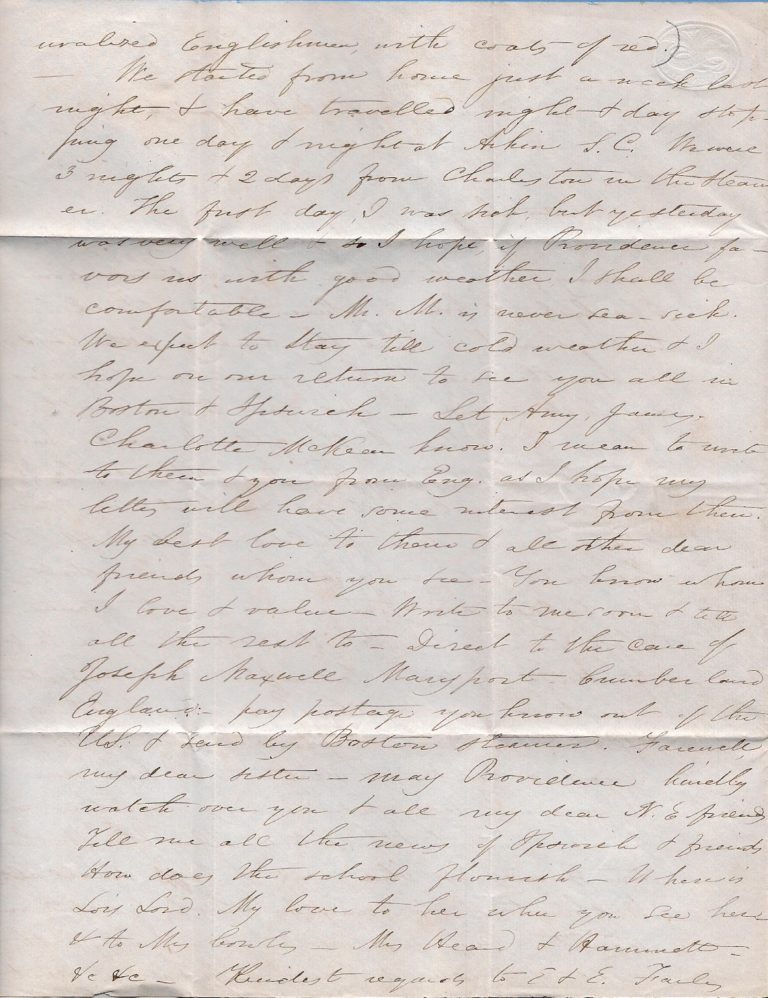 uralized Englishmen, with coats of red.)
— We started from home just a week last
night, & have travelled night & day stop-
ping one day & night at Aikin S.C. We were
3 nights & 2 days from Charleston in the steam
er. The first day, I was sick, but yesterday
was very well & so I hope, if Providence fa-
vors us with good weather I shall be
comfortable – Mr. M. is never sea-sick.
We expect to stay till cold weather & I
hope on our return to see you all in
Boston & Ipswich – Let Amy, James,
Charlotte McKean know. I mean to write
to them & you from Eng. as I hope my
letters will have some interest from there.
My best love to them & all other dear
friends whom you see – You know whom
I love & value – Write to me soon & tell
all the rest to – Direct to the care of
Joseph Maxwell Maryport Cumberland
England – pay postage you know out of the
U.S. & send by Boston steamer. Farewell,
my dear sister – may Providence kindly
watch over you & all my dear N. E friends
Tell me all the news of Ipswich & friends
How does the school flourish – Where is
Lois Lord. My love to her when you see her
& to Mrs Cowles – Mrs Heard & Hammett –
&c &c – Kindest regards to E & E. Farley